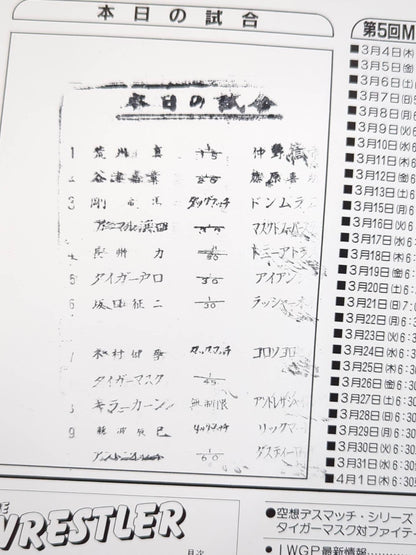 本日の試合
本日の試合
1 荒川真 1/15 仲野
2 谷津嘉章 藤原喜
3 剛 タッグマッチ ドンムラ
アニマル浜田 マスクド
4 長州力 トニーアトラ
5 タイガー 1/30 アイアン
6 坂口征二 1/30 ラッシャー木
7 木村健吾 タッグマッチ コロソコロ
タイガーマスク 1/45
8 キラーカーン 無制限 アンドレザジャ
9 藤波辰巳 タッグマッチ リックマー
1/60 ダスティー
第5回M
■3月4日(木)
■3月5日(金)
■3月6日(土)
■3月7日(日)
■3月8日(月)6
■3月9日(火)6
■3月10日(水)6
■3月11日(木)6
■3月12日(金)6
■3月13日(土)6
■3月15日(月)6
■3月16日(火)6
■3月17日(水)6
■3月18日(木)6
■3月19日(金)6
■3月20日(土)6:
■3月21日(日)7:
■3月22日(月)6:
■3月23日(火)6:
■3月24日(水)6:
■3月25日(木)6:
■3月26日(金)6:30
■3月27日(土)6:
■3月28日(日)6:30
■3月29日(月)6:30
■3月30日(火)6:30
■3月31日(水)6:30
■4月1日(木)6:30
WRESTLER
目次
●空想デスマッチ・シリーズ
タイガーマスク対ファイテ
●IWGP最新情報